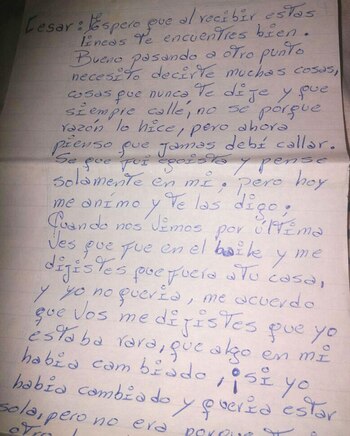 Cesar: Espero que al recibir estas
lineas te encuentres bien.
Bueno pasando a otro punto
necesito decirte muchas cosas,
cosas que nunca te dije y que
siempre callé, no se porque
razón lo hice, pero ahora
pienso que jamas debi callar.
Se que fui egoista y pense
solamente en mi. pero hoy
me animo y te las digo;
Cuando nos vimos por última
ves que fue en el baile y me
dijistes que fuera a tu casa,
y yo no queria, me acuerdo
que vos me dijistes que yo
estaba rara, que algo en mi
habia cambiado, ¡si yo
habia cambiado y queria estar
sola, pero no era porque